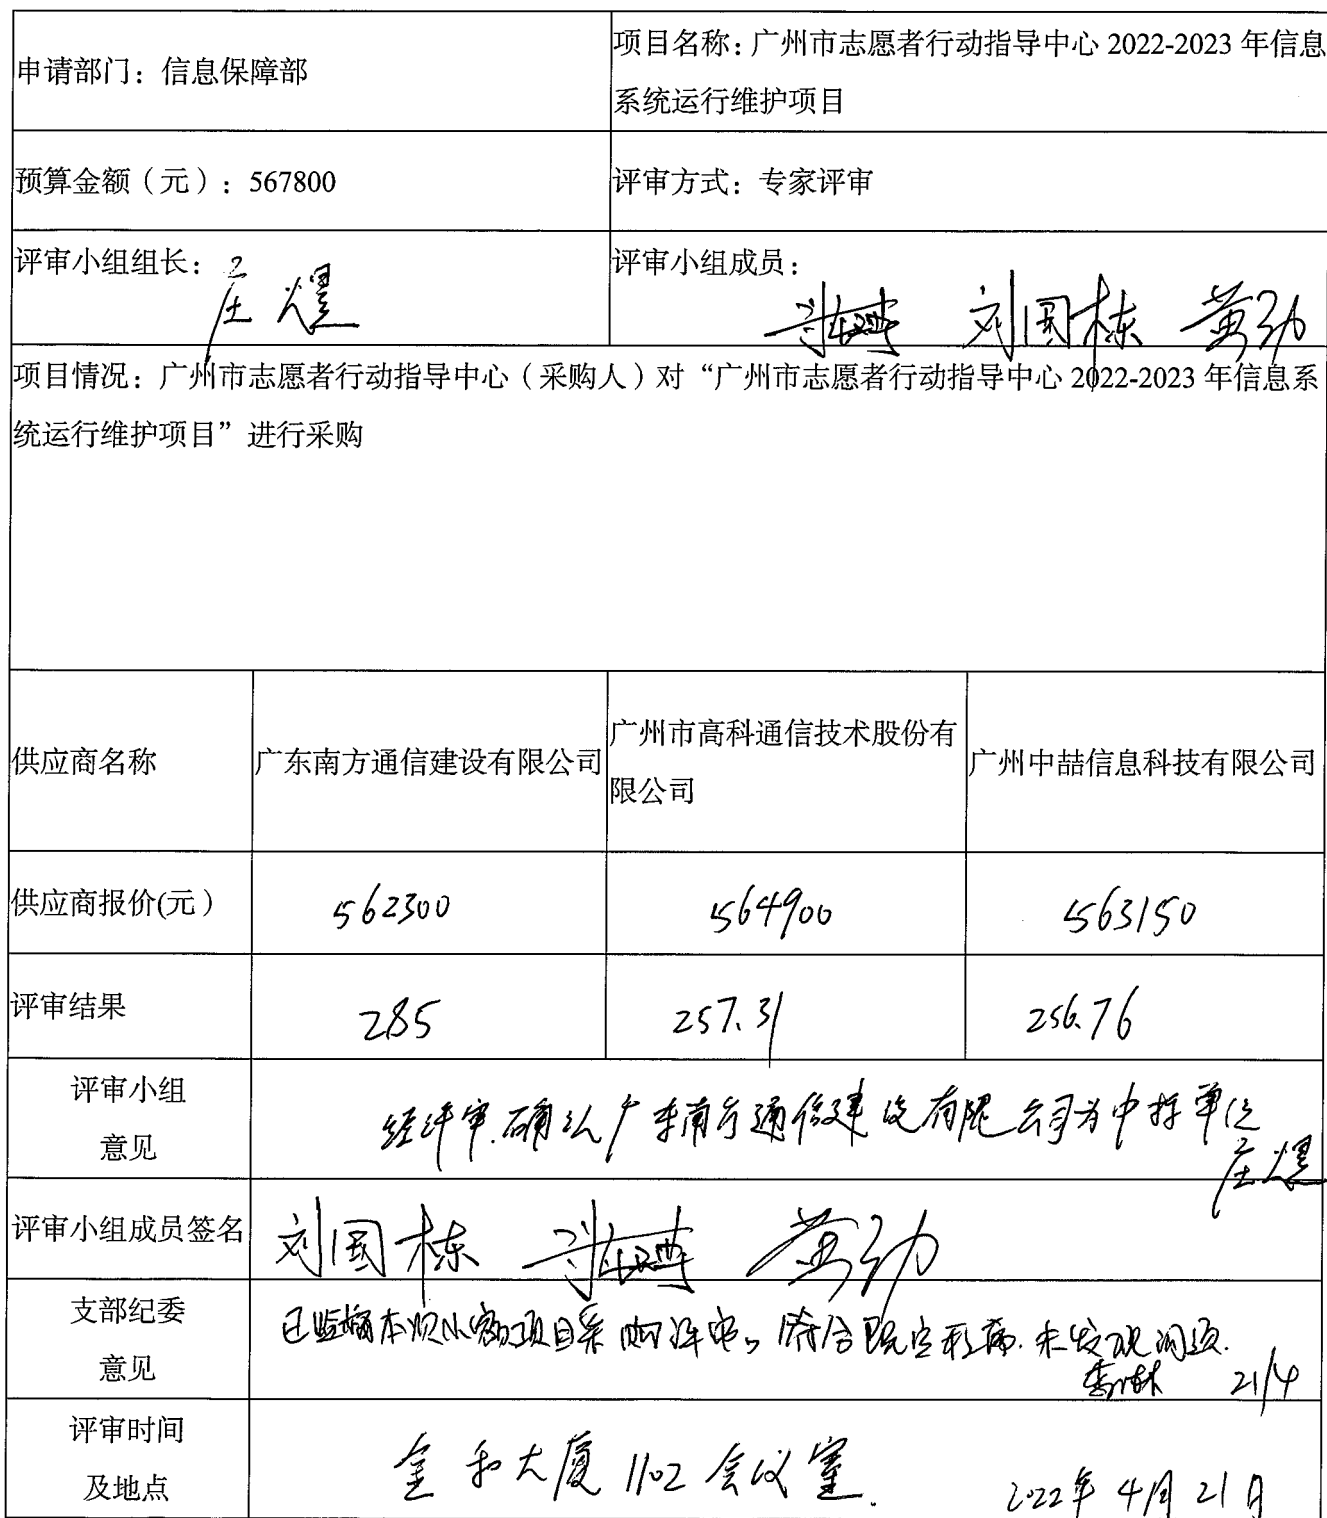 申请部门：信息保障部
项目名称：广州市志愿者行动指导中心 2022-2023 年信息
系统运行维护项目
预算金额（元）：567800
评审方式：专家评审
评审小组组长：
庄
评审小组成员：
刘国栋 黄劲
项目情况：广州市志愿者行动指导中心（采购人）对“广州市志愿者行动指导中心 2022-2023 年信息系
统运行维护项目”进行采购
供应商名称
广东南方通信建设有限公司
广州市高科通信技术股份有
限公司
广州中喆信息科技有限公司
供应商报价(元）
562300
564900
563150
评审结果
285
257.31
256.76
评审小组
意见
经评审.确认广东南方通信建设有限公司为中标单位
庄
评审小组成员签名
刘国栋 黄劲
支部纪委
意见
已监督本次小额项目采购评审。符合既定程序.未发现问题.
21/4
评审时间
及地点
金和大厦1102会议室.
2022年4月21日